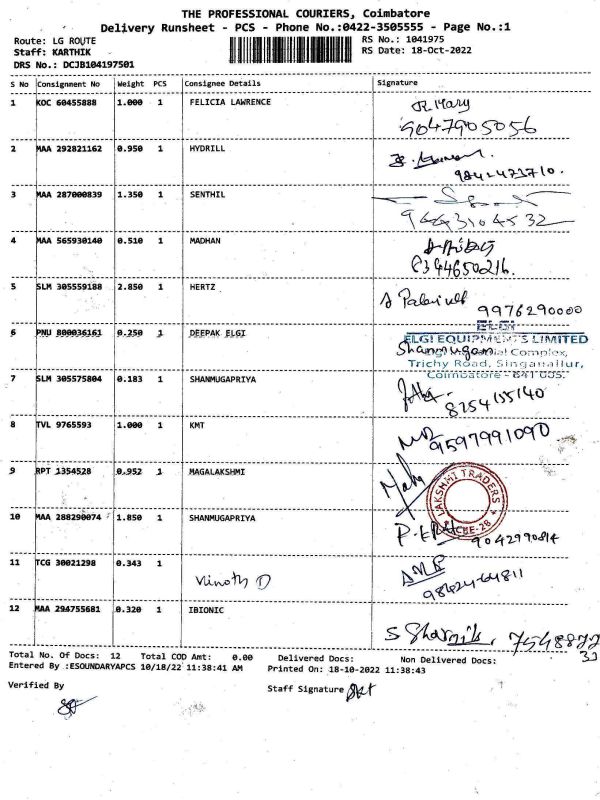 THE PROFESSIONAL COURIERS, Coimbatore
Delivery Runsheet - PCS - Phone No.:0422-3505555 - Page No.:1
Route: LG ROUTE
RS No.: 1041975
Staff: KARTHIK
RS Date: 18-Oct-2022
DRS No.: DCJB104197501
S No Consignment No Weight PCS Consignee Details Signature
1 KOC 60455888 1.000 1 FELICIA LAWRENCE R. Mary
9047905056
2 MAA 292821162 0.950 1 HYDRILL
3 MAA 287000839 1.350 1 SENTHIL
9443104532
4 MAA 565930140 0.510 1 MADHAN
6344650216.
5 SLM 305559188 2.850 1 HERTZ
9976290000
ELGI
6 PNU 800036161 0.250 1 DEEPAK ELGI ELGI EQUIPMENTS LIMITED
Shanmugan
Elgi Industrial Complex,
Trichy Road, Singanallur,
Coimbatore - 641 005.
7 SLM 305575804 0.183 1 SHANMUGAPRIYA
8254155140
8 TVL 9765593 1.000 1 KMT
9597991090
9 RPT 1354528 0.952 1 MAGALAKSHMI Maha
LAKSHMI TRADERS
CBE-28
10 MAA 288290074 1.850 1 SHANMUGAPRIYA
9042990814
11 TCG 30021298 0.343 1 Vinoth D
12 MAA 294755681 0.320 1 IBIONIC
S 7548872
33
Total No. Of Docs: 12 Total COD Amt: 0.00 Delivered Docs: Non Delivered Docs:
Entered By :ESOUNDARYAPCS 10/18/22 11:38:41 AM Printed On: 18-10-2022 11:38:43
Verified By
Staff Signature